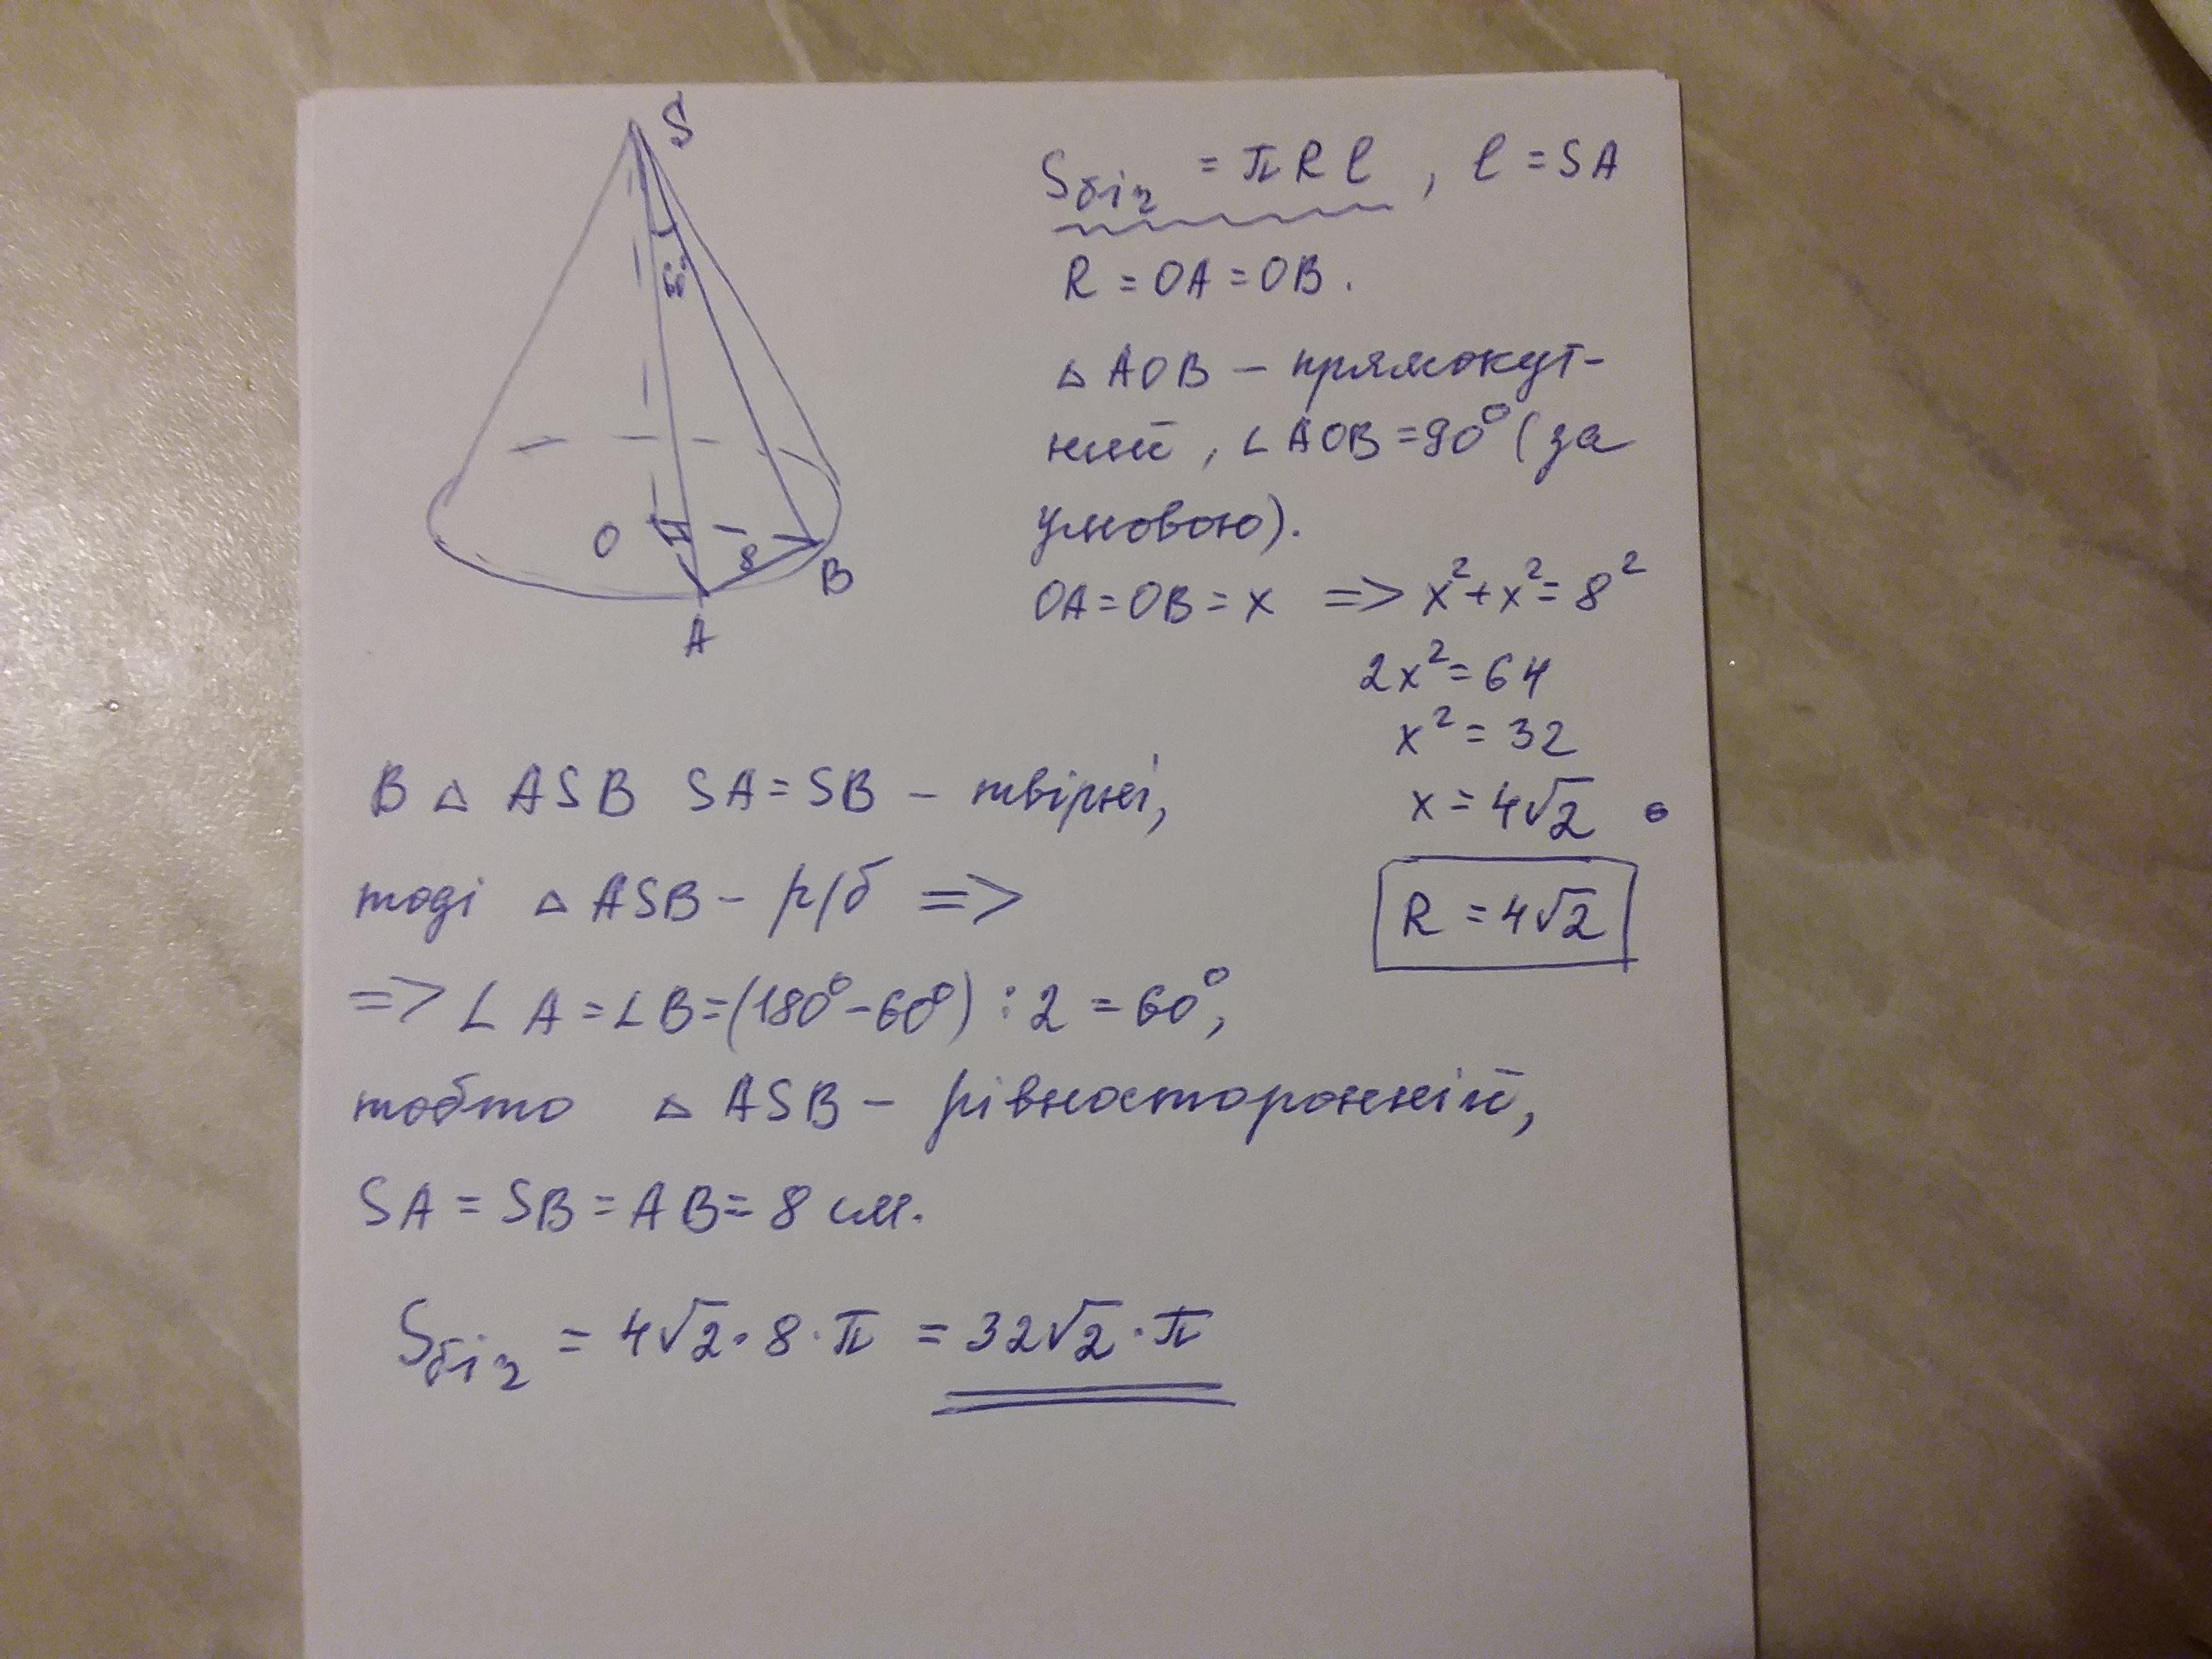 S
60°
O
8
B
A
Sбіч = πRl, l = SA
R = OA = OB.
△ AOB – прямокут-
ний, ∠AOB = 90° (за
умовою).
OA = OB = x => x² + x² = 8²
2x² = 64
x² = 32
x = 4√2
R = 4√2
В △ ASB SA = SB – твірні,
тоді △ ASB – р/б =>
=> ∠A = ∠B = (180° – 60°) : 2 = 60°,
тобто △ ASB – рівносторонній,
SA = SB = AB = 8 см.
Sбіч = 4√2 · 8 · π = 32√2 · π